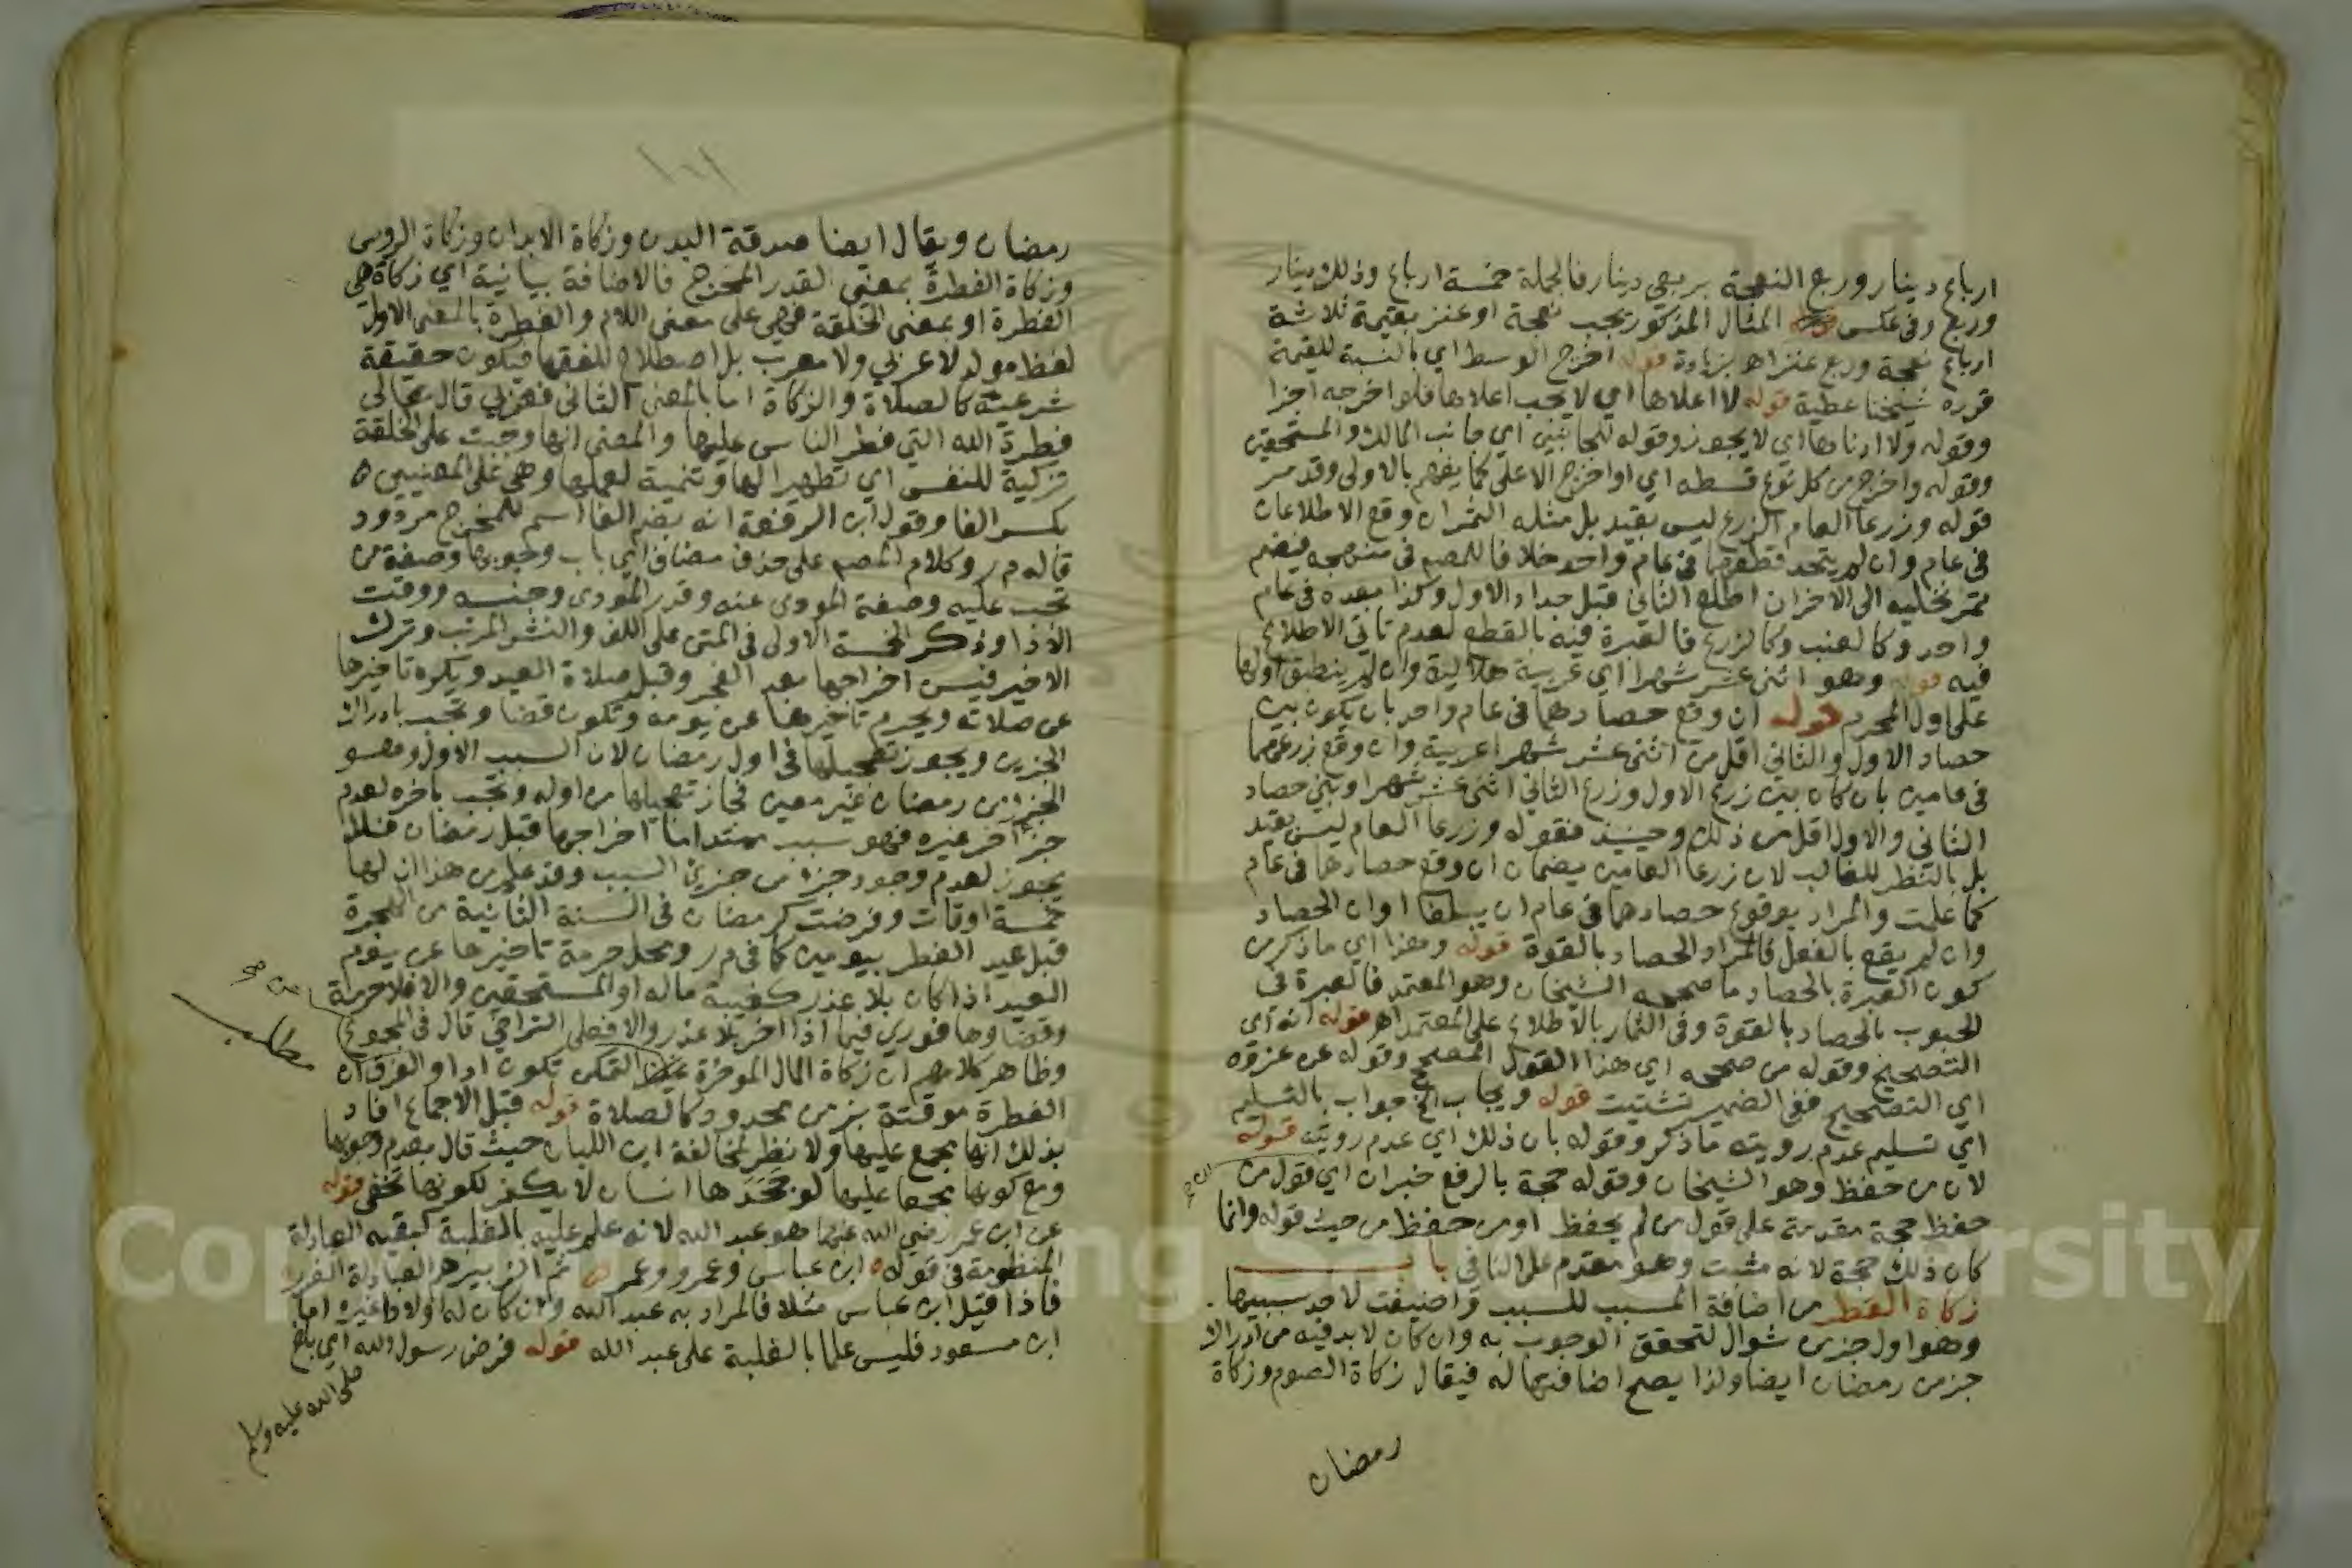 ارباع دينار وربع النعجة بربعي دينار فالجملة خمسة ارباع وذلك دينار
وربع وفي عكس المثال المذكور يجب نعجة او عنز بقيمة ثلاثة
ارباع نعجة وربع عنز اهـ بزيادة قوله اخرج الوسط اي بالنسبة للقيمة
قرره شيخنا عطية قوله لا اعلاها اي لا يجب اعلاها فلو اخرجه اجزا
وقوله ولا ادناها اي لا يجوز وقوله للجانبين اي جانب المالك والمستحقين
وقوله واخرج من كل نوع قسطه اي او اخرج الاعلى كما يفهم بالاولى وقد مر
قوله وزرعا العام الزرع ليس بقيد بل مثله الثمران وقع الاطلاعان
في عام وان لم يتحد قطعهما في عام واحد خلافا للمص في منهجه فيضم
ثمر نخليه الى الاخران اطلع الثاني قبل جداد الاول وكذا بعده في عام
واحد وكالعنب وكالزرع فالعبرة فيه بالقطع لعدم تاتي الاطلاع
فيه قوله وهو اثنى عشر شهرا اي عربية هلالية وان لم ينطبق اولها
على اول المحرم قوله ان وقع حصادهما في عام واحد بان يكون بين
حصاد الاول والثاني اقل من اثنى عشر شهرا عربية وان وقع زرعهما
في عامين بان كان بين زرع الاول وزرع الثاني اثنى عشر شهرا وبين حصاد
الثاني والاول اقل من ذلك وحينئذ فقوله وزرعا العام ليس بقيد
بل بالنظر للغالب لان زرعا العامين يضمان ان وقع حصادهما في عام
كما علمت والمراد بوقوع حصادهما في عام ان يبلغا اوان الحصاد
وان لم يقع بالفعل فالمراد الحصاد بالقوة قوله وهذا اي ما ذكر من
كون العبرة بالحصاد ما صححه الشيخان وهو المعتمد فالعبرة في
الحبوب بالحصاد بالقوة وفي الثمار بالاطلاع على المعتمد اهـ قوله انه اي
التصحيح وقوله من صححه اي هذا القول المصحح وقوله عن عزوه
اي التصحيح ففي الضمير تشتيت قوله ويجاب الخ جواب بالتسليم
اي تسليم عدم رويته ما ذكر وقوله بان ذلك اي عدم رويته قوله
لان من حفظ وهو الشيخان وقوله حجة بالرفع خبر ان اي قول من
حفظ حجة مقدمة على قول من لم يحفظ او من حفظ من حيث قوله وانما
كان ذلك حجة لانه مثبت وهو مقدم على النافي باب
زكاة الفطر من اضافة المسبب للسبب واضيفت لاحد سببيها
وهو اول جزء من شوال لتحقق الوجوب به وان كان لا بد فيه من ادراك
جزء من رمضان ايضا ولذا يصح اضافتها له فيقال زكاة الصوم وزكاة
رمضان
رمضان ويقال ايضا صدقة البدن وزكاة الابدان وزكاة الروس
وزكاة الفطرة بمعنى القدر المخرج فالاضافة بيانية اي زكاة هي
الفطرة او بمعنى الخلقة فهي على معنى اللام والفطرة بالمعنى الاول
لفظ مولد لا عربي ولا معرب بل اصطلاح للفقها فتكون حقيقة
شرعية كالصلاة والزكاة اما بالمعنى الثاني فعربي قال تعالى
فطرة الله التي فطر الناس عليها والمعنى انها وجبت على الخلقة
تزكية للنفس اي تطهيرا لها وتنمية لعملها وهي على المعنيين
بكسر الفا وقول ابن الرفعة انه بضم الفا اسم للمخرج مردود
قاله م ر وكلام المص على حذف مضاف اي باب وجوبها وصفة من
تجب عليه وصفة المودى عنه وقدر المودى وجنسه ووقت
الاداء وذكر الخمسة الاولى في المتن على اللف والنشر المرتب وترك
الاخير فيسن اخراجها بعد الفجر وقبل صلاة العيد ويكره تاخيرها
عن صلاته ويحرم تاخيرها عن يومه وتكون قضا وتجب بادراك
الجزءين ويجوز تعجيلها في اول رمضان لان السبب الاول وهو
الجزء من رمضان غير معين فجاز تعجيلها من اوله وتجب باخره لعدم
جزء اخر غيره فهو سبب ممتد اما اخراجها قبل رمضان فلا
يجوز لعدم وجود جزء من جزئي السبب وقد علم من هذا ان لها
خمسة اوقات وفرضت كرمضان في السنة الثانية من الهجرة
قبل عيد الفطر بيومين كما في م ر ومحل حرمة تاخيرها عن يوم
العيد اذا كان بلا عذر كغيبة ماله او المستحقين والا فلا حرمة
وقضاوها فوري فيما اذا اخر بلا عذر والا فعلى التراخي قال في المجموع
وظاهر كلامهم ان زكاة المال الموخرة عن التمكن تكون ادا والفرق ان
الفطرة موقتة بزمن محدود كالصلاة قوله قبل الاجماع افاد
بذلك انها مجمع عليها ولا نظر لمخالفة ابن اللبان حيث قال بعدم وجوبها
ومع كونها مجمعا عليها لو جحدها انسان لا يكفر لكونها تخفى قوله
عن ابن عمر رضي الله عنهما هو عبد الله لانه علم عليه بالغلبة كبقية العبادلة
المنظومة في قوله ابن عباس وعمرو وعمر ثم الزبير هم العبادلة الغرر
فاذا قيل ابن عباس مثلا فالمراد به عبد الله وان كان له اولاد غيره اما
ابن مسعود فليس علما بالغلبة على عبد الله قوله فرض رسول الله اي بلغ
صلى الله عليه وسلم
مطلب